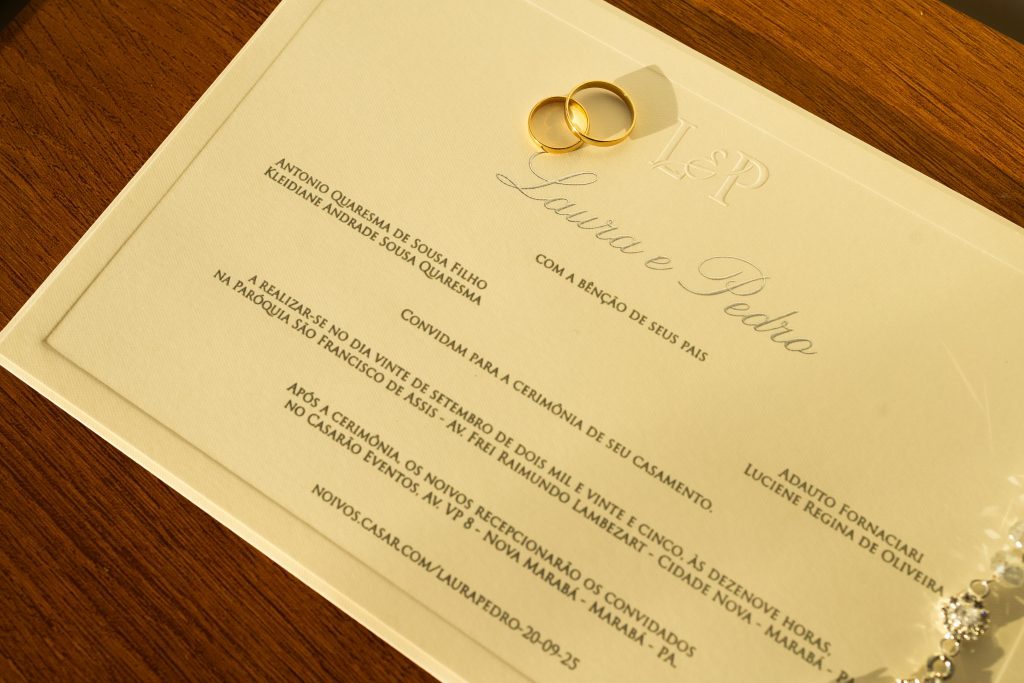 L&P
Laura e Pedro
COM A BÊNÇÃO DE SEUS PAIS
ANTONIO QUARESMA DE SOUSA FILHO
KLEIDIANE ANDRADE SOUSA QUARESMA
ADAUTO FORNACIARI
LUCIENE REGINA DE OLIVEIRA
CONVIDAM PARA A CERIMÔNIA DE SEU CASAMENTO,
A REALIZAR-SE NO DIA VINTE DE SETEMBRO DE DOIS MIL E VINTE E CINCO, ÀS DEZENOVE HORAS,
NA PARÓQUIA SÃO FRANCISCO DE ASSIS - AV. FREI RAIMUNDO LAMBEZART - CIDADE NOVA - MARABÁ - PA
APÓS A CERIMÔNIA, OS NOIVOS RECEPCIONARÃO OS CONVIDADOS
NO CASARÃO EVENTOS, AV. VP 8 - NOVA MARABÁ - MARABÁ - PA.
NOIVOS.CASAR.COM/LAURAPEDRO-20-09-25